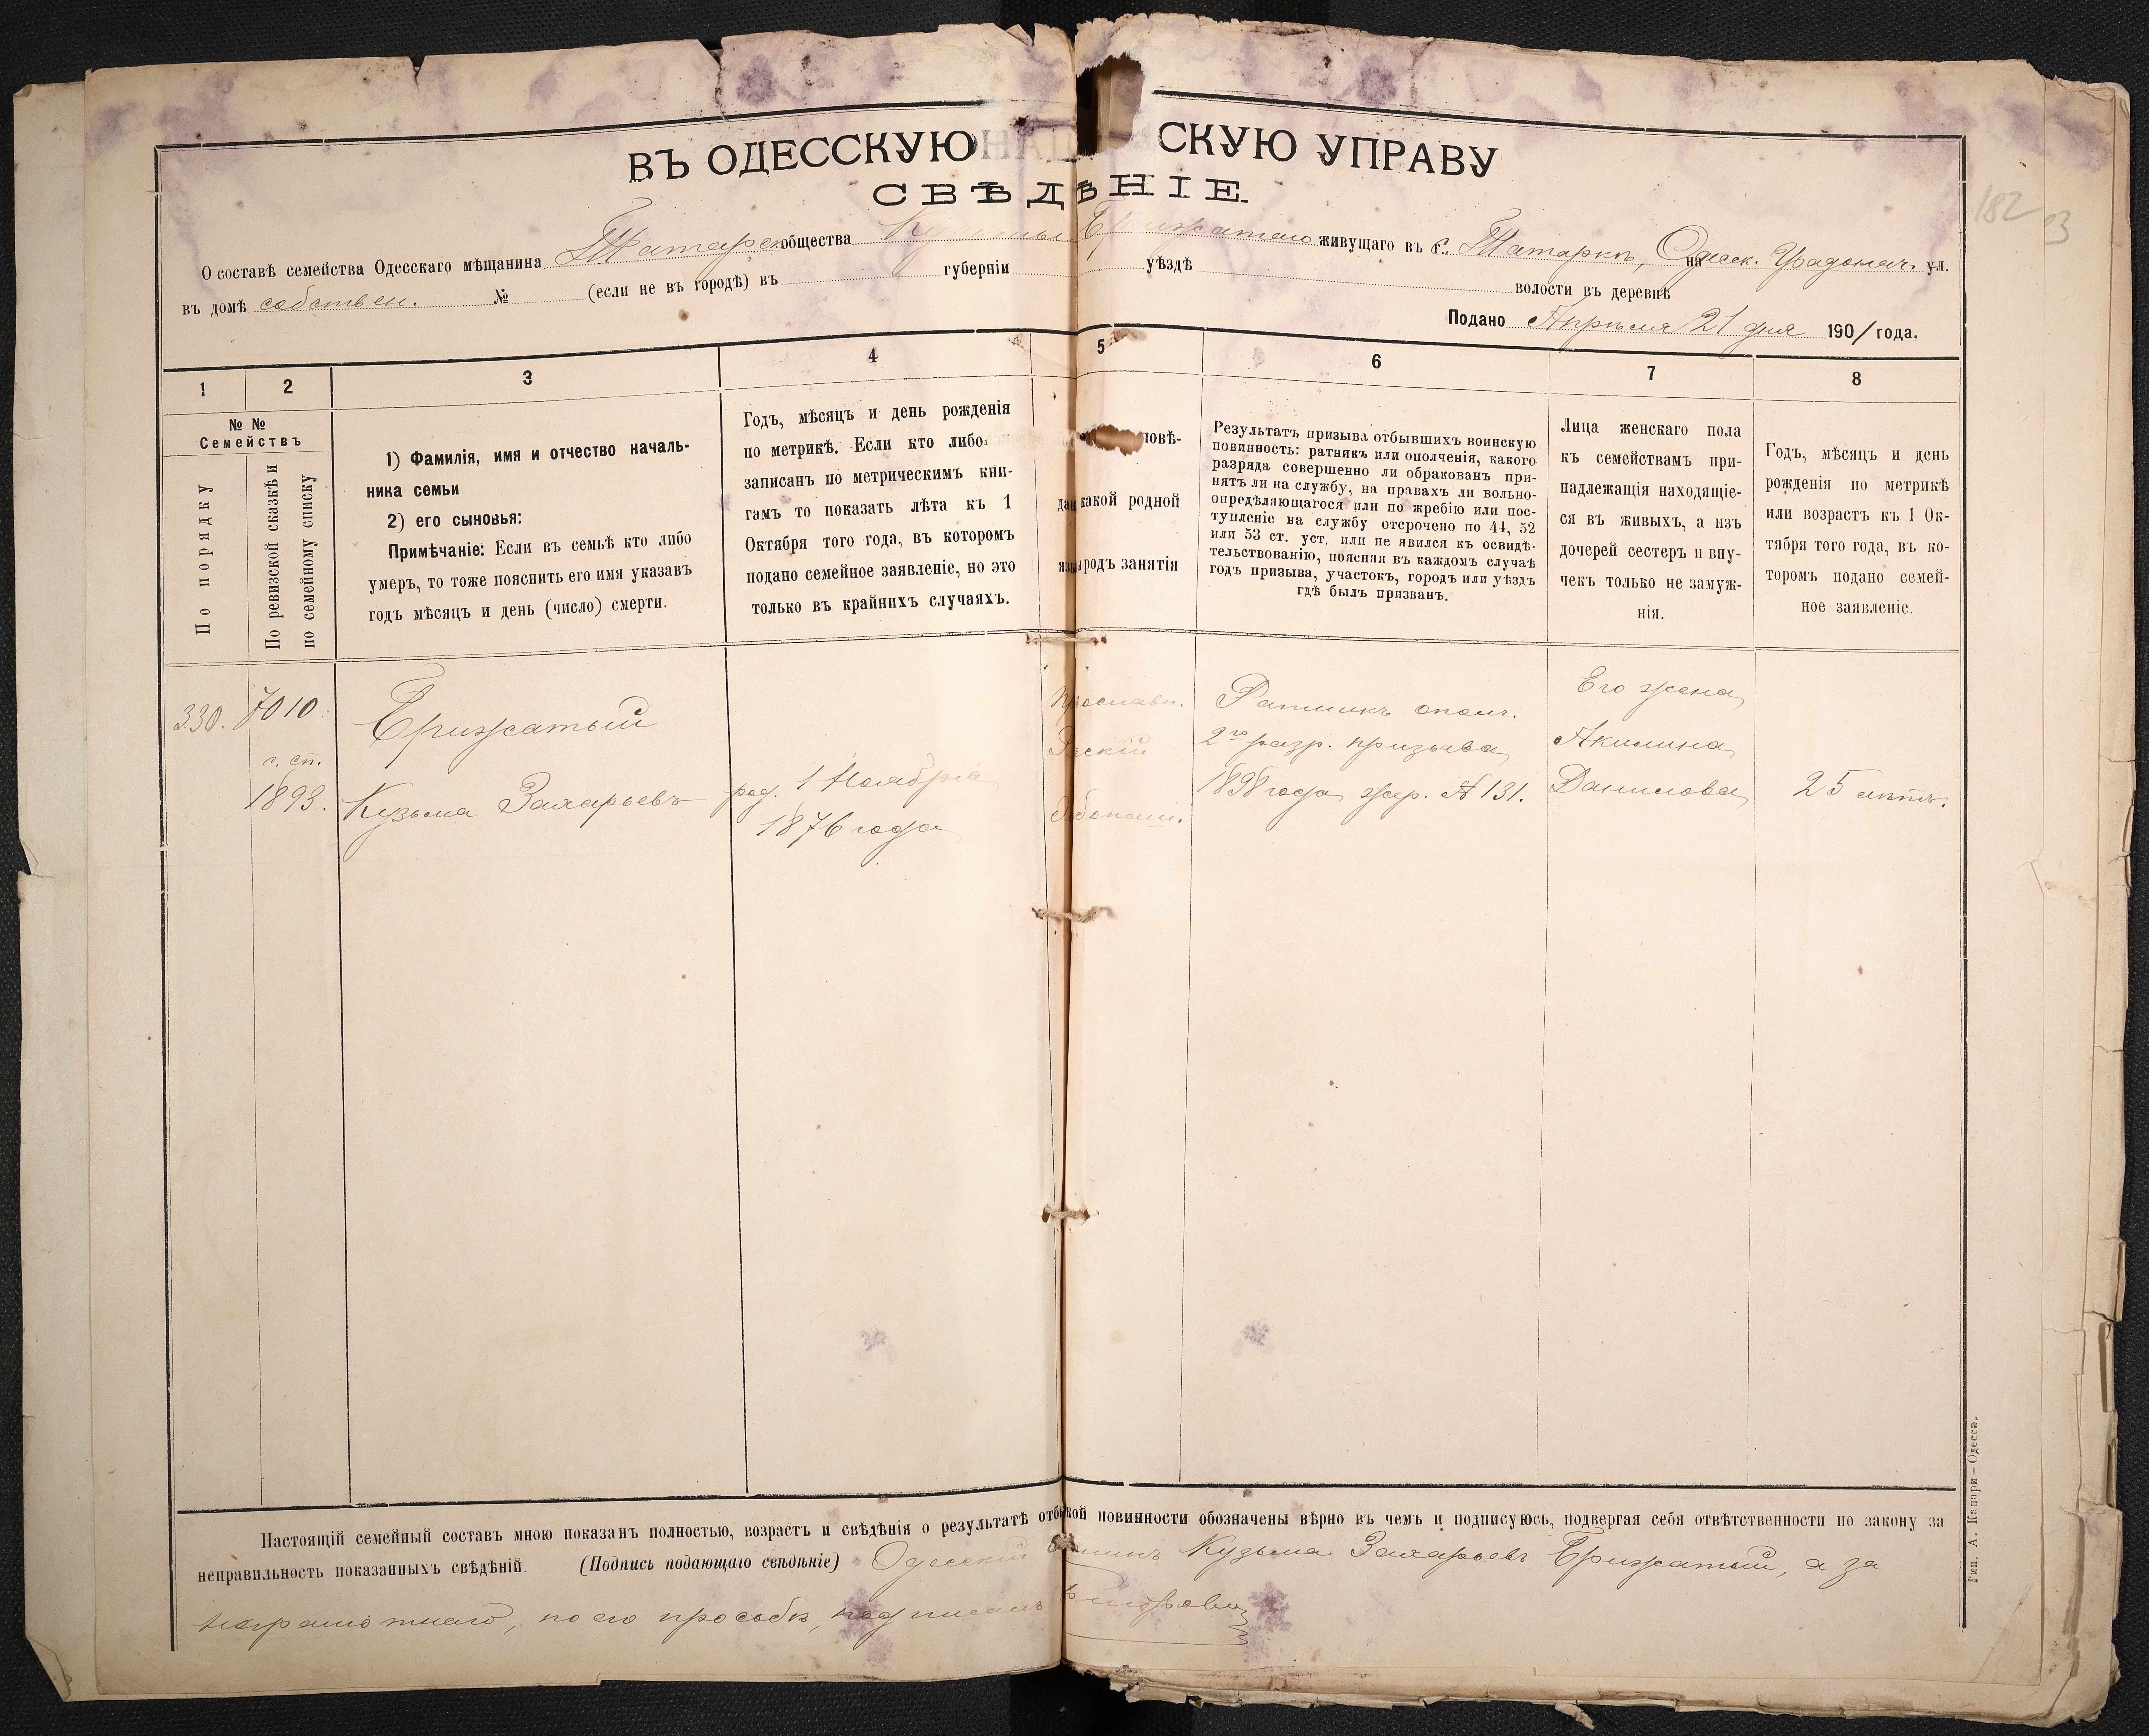 ВЪ ОДЕССКУЮ СКУЮ УПРАВУ
СВѢДѢНІЕ.
О составѣ семейства Одесскаго мѣщанина Татарс. общества Кузьмы живущаго въ с. Татаркѣ, на Одесск. Градонач. ул.
въ домѣ собствен. № (если не въ городѣ) въ губерніи уѣздѣ волости въ деревнѣ
Подано Апрѣля 21 дня 1901 года.
1 2 3 4 5 6 7 8
№ №
Семействъ
По порядку
По ревизской сказкѣ и
по семейному списку
1) Фамилія, имя и отчество началь-
ника семьи
2) его сыновья:
Примѣчаніе: Если въ семьѣ кто либо
умеръ, то тоже пояснить его имя указавъ
годъ мѣсяцъ и день (число) смерти.
Годъ, мѣсяцъ и день рожденія
по метрикѣ. Если кто либо
записанъ по метрическимъ кни-
гамъ то показать лѣта къ 1
Октября того года, въ которомъ
подано семейное заявленіе, но это
только въ крайнихъ случаяхъ.
повѣ-
какой родной
родъ занятія
Результатъ призыва отбывшихъ воинскую
повинность: ратникъ или ополченія, какого
разряда совершенно ли обракованъ при-
нятъ ли на службу, на правахъ ли вольно-
опредѣляющагося или по жребію или пос-
тупленіе на службу отсрочено по 44, 52
или 53 ст. уст. или не явился къ освидѣ-
тельствованію, поясняя въ каждомъ случаѣ
годъ призыва, участокъ, городъ или уѣздъ
гдѣ былъ призванъ.
Лица женскаго пола
къ семействамъ при-
надлежащія находящіе-
ся въ живыхъ, а изъ
дочерей сестеръ и вну-
чекъ только не замуж-
нія.
Годъ, мѣсяцъ и день
рожденія по метрикѣ
или возрастъ къ 1 Ок-
тября того года, въ ко-
торомъ подано семей-
ное заявленіе.
330. 7010.
с. сп.
1893.
Брижатый
Кузьма Захарьевъ
род. 1 Ноября
1876 года
Православн.
Рускій
Ратникъ ополч.
2го разр. призыва
1898 года жер. № 131.
Его жена
Акилина
Данилова
25 лѣтъ.
Настоящій семейный составъ мною показанъ полностью, возрастъ и свѣдѣнія о результатѣ отбы кой повинности обозначены вѣрно въ чемъ и подписуюсь, подвергая себя отвѣтственности по закону за
неправильность показанныхъ свѣдѣній. (Подпись подающаго свѣдѣніе) Одесскій Кузьма Захарьевъ Брижатый, а за
неграмотнаго, по его просьбѣ, подписалъ
Тип. А. Копари—Одесса.
182